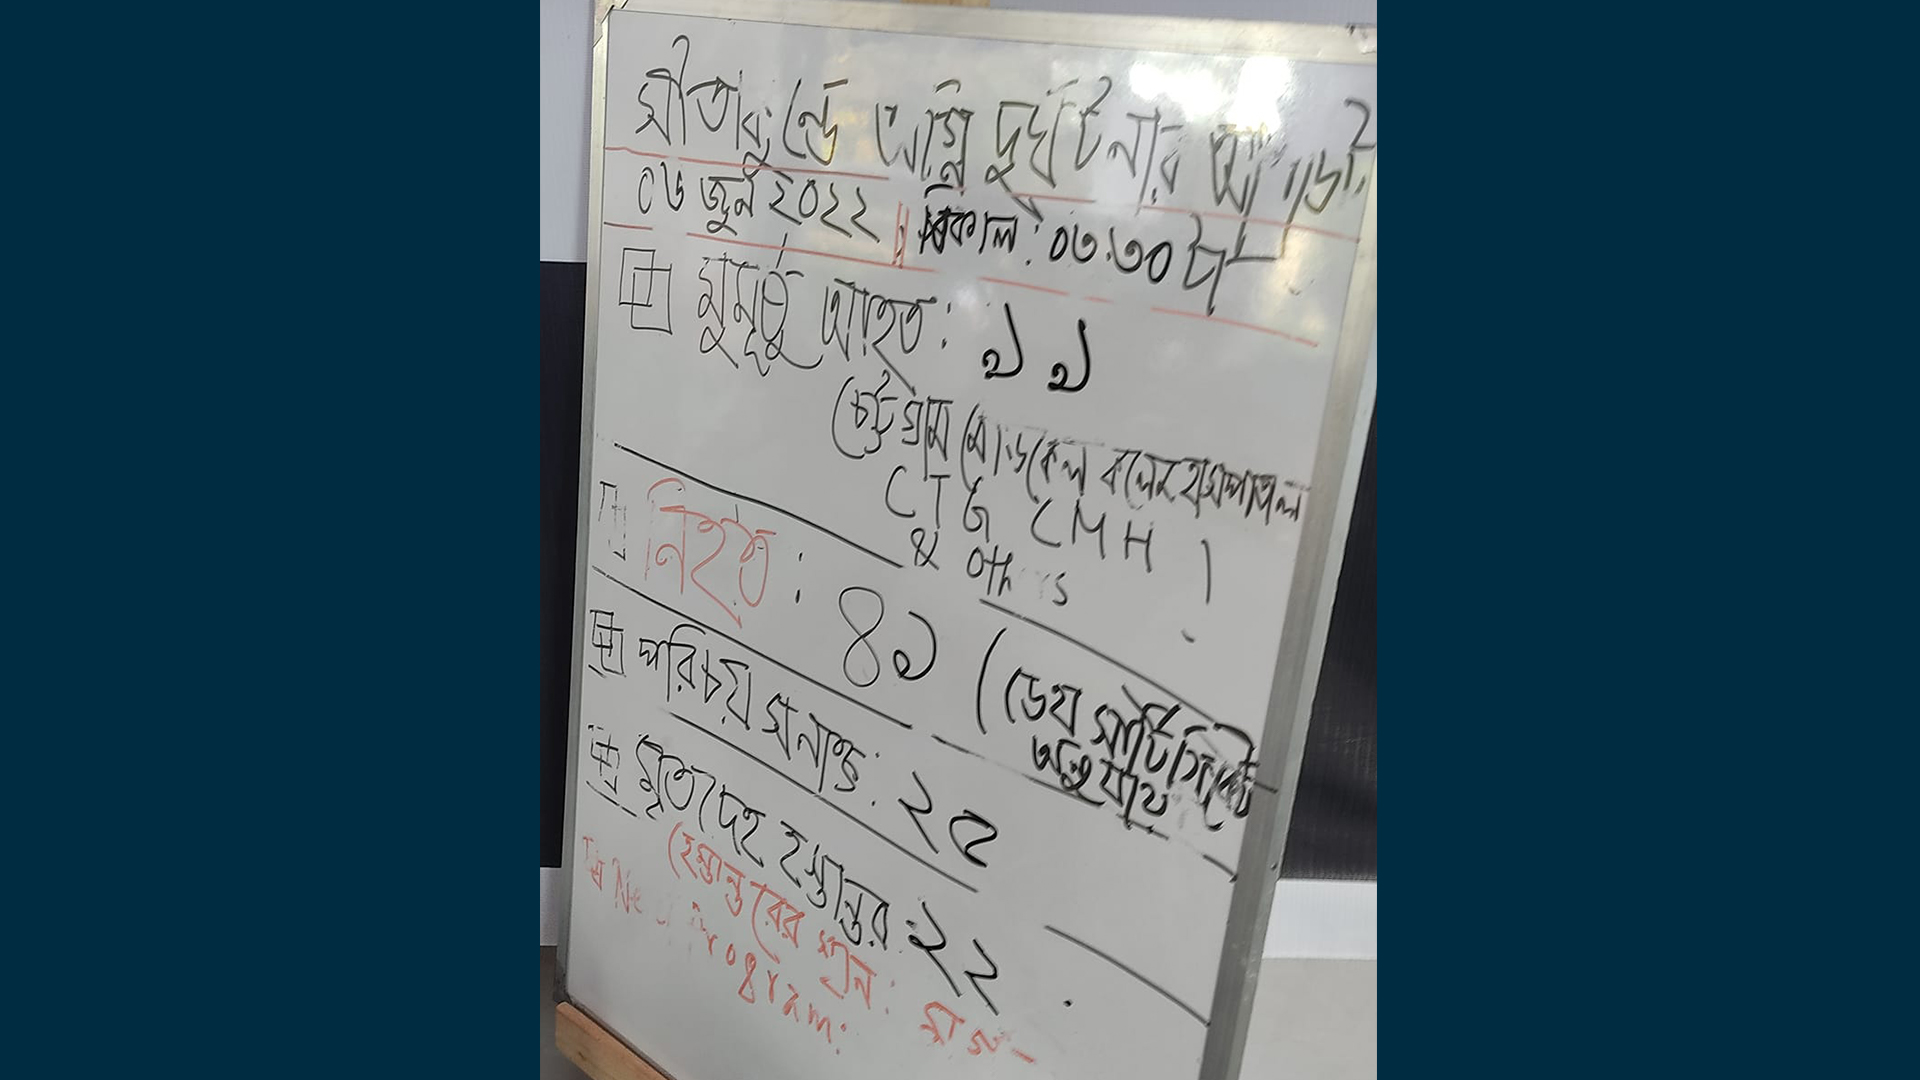 সীতাকুন্ডে অগ্নি দুর্ঘটনার
০৬ জুন ২০২২ || বিকাল: ০৩.৩০ টা
মুমূর্ষু আহত: ১১
(চট্টগ্রাম মেডিকেল কলেজ হাসপাতাল
CTG CMH
& Others
নিহত: ৪১ (ডেথ সার্টিফিকেট
অনুযায়ী
পরিচয় সনাক্ত: ২৫
মৃতদেহ হস্তান্তর: ২২
(হস্তান্তরের স্থান:
Program: